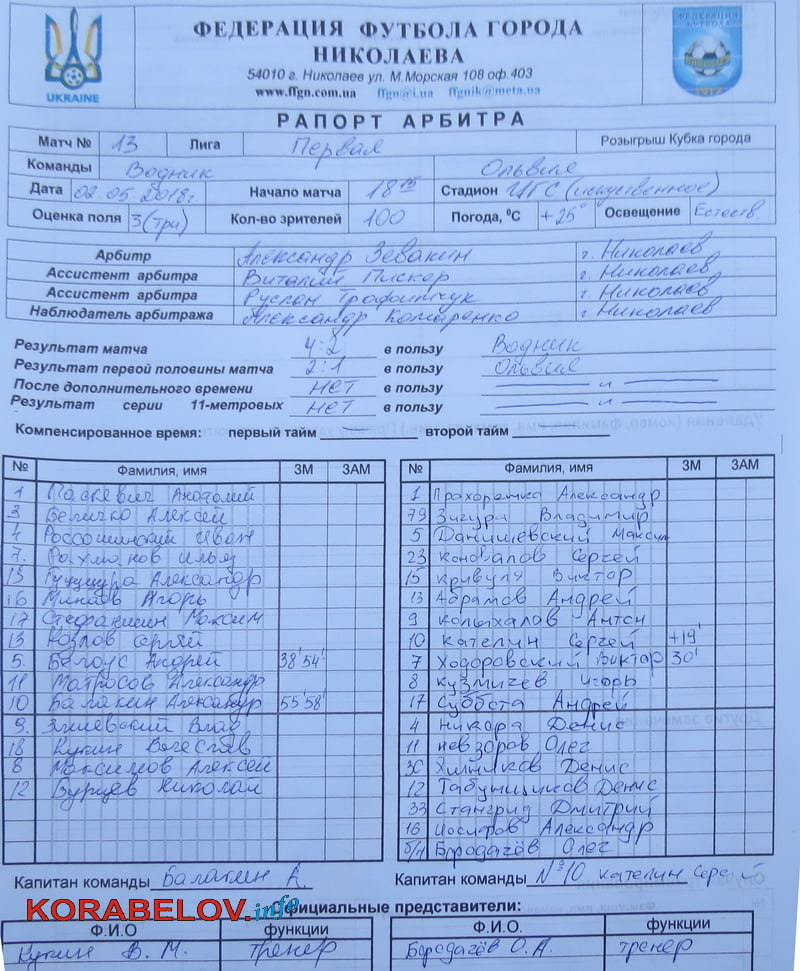 UKRAINE
ФЕДЕРАЦИЯ ФУТБОЛА ГОРОДА
НИКОЛАЕВА
54010 г. Николаев ул. М.Морская 108 оф.403
www.ffgn.com.ua ffgn@i.ua ffgnik@meta.ua
РАПОРТ АРБИТРА
Матч № 13 Лига Первая Розыгрыш Кубка города
Команды Водник Ольвия
Дата 02.05.2018г. Начало матча 18 15 Стадион ЦГС (искуственное)
Оценка поля 3(три) Кол-во зрителей 100 Погода, ⁰С +25° Освещение Естеств.
Арбитр Александр Зевакин г. Николаев
Ассистент арбитра Виталий Пискор г. Николаев
Ассистент арбитра Руслан г. Николаев
Наблюдатель арбитража Александр Комаренко г Николаев
Результат матча 4:2 в пользу Водник
Результат первой половины матча 2:1 в пользу Ольвия
После дополнительного времени НЕТ в пользу — и —
Результат серии 11-метровых НЕТ в пользу — и —
Компенсированное время: первый тайм — второй тайм —
№ Фамилия, имя ЗМ ЗАМ
1 Паскевич Анатолий
3 Величко Алексей
4 Россошинский Иван
7. Рахманов Илья
15 Александр
16 Минаев Игорь
17 Стефанишин Максим
13 Козлов Сергей
5. Белоус Андрей 38' 54'
11 Матросов Александр
10 Балакин Александр 55' 58'
9. Змиевский Влад
18 Кукин Вячеслав
8 Максимов Алексей
12 Бурцев Николай
Капитан команды Балакин А.
№ Фамилия, имя ЗМ ЗАМ
1 Прохоренко Александр
79 Зигура Владимир
5 Данишевский Максим
23 Коновалов Сергей
15 Кривуля Виктор
13 Абрамов Андрей
9 Колыхалов Антон
10 Кателин Сергей +19'
7 Ходоровский Виктор 30'
8 Кузмичев Игорь
17 Суббота Андрей
4 Никора Денис
11 Невзоров Олег
30 Хильчиков Денис
12 Табунщиков Денис
33 Стангрид Дмитрий
16 Иосипов Александр
б/н Бородачёв Олег
Капитан команды №10 Кателин Сергей
KORABELOV.info
Официальные представители:
Ф.И.О функции Ф.И.О. функции
Кукин В. М. тренер Бородачёв О.А. тренер